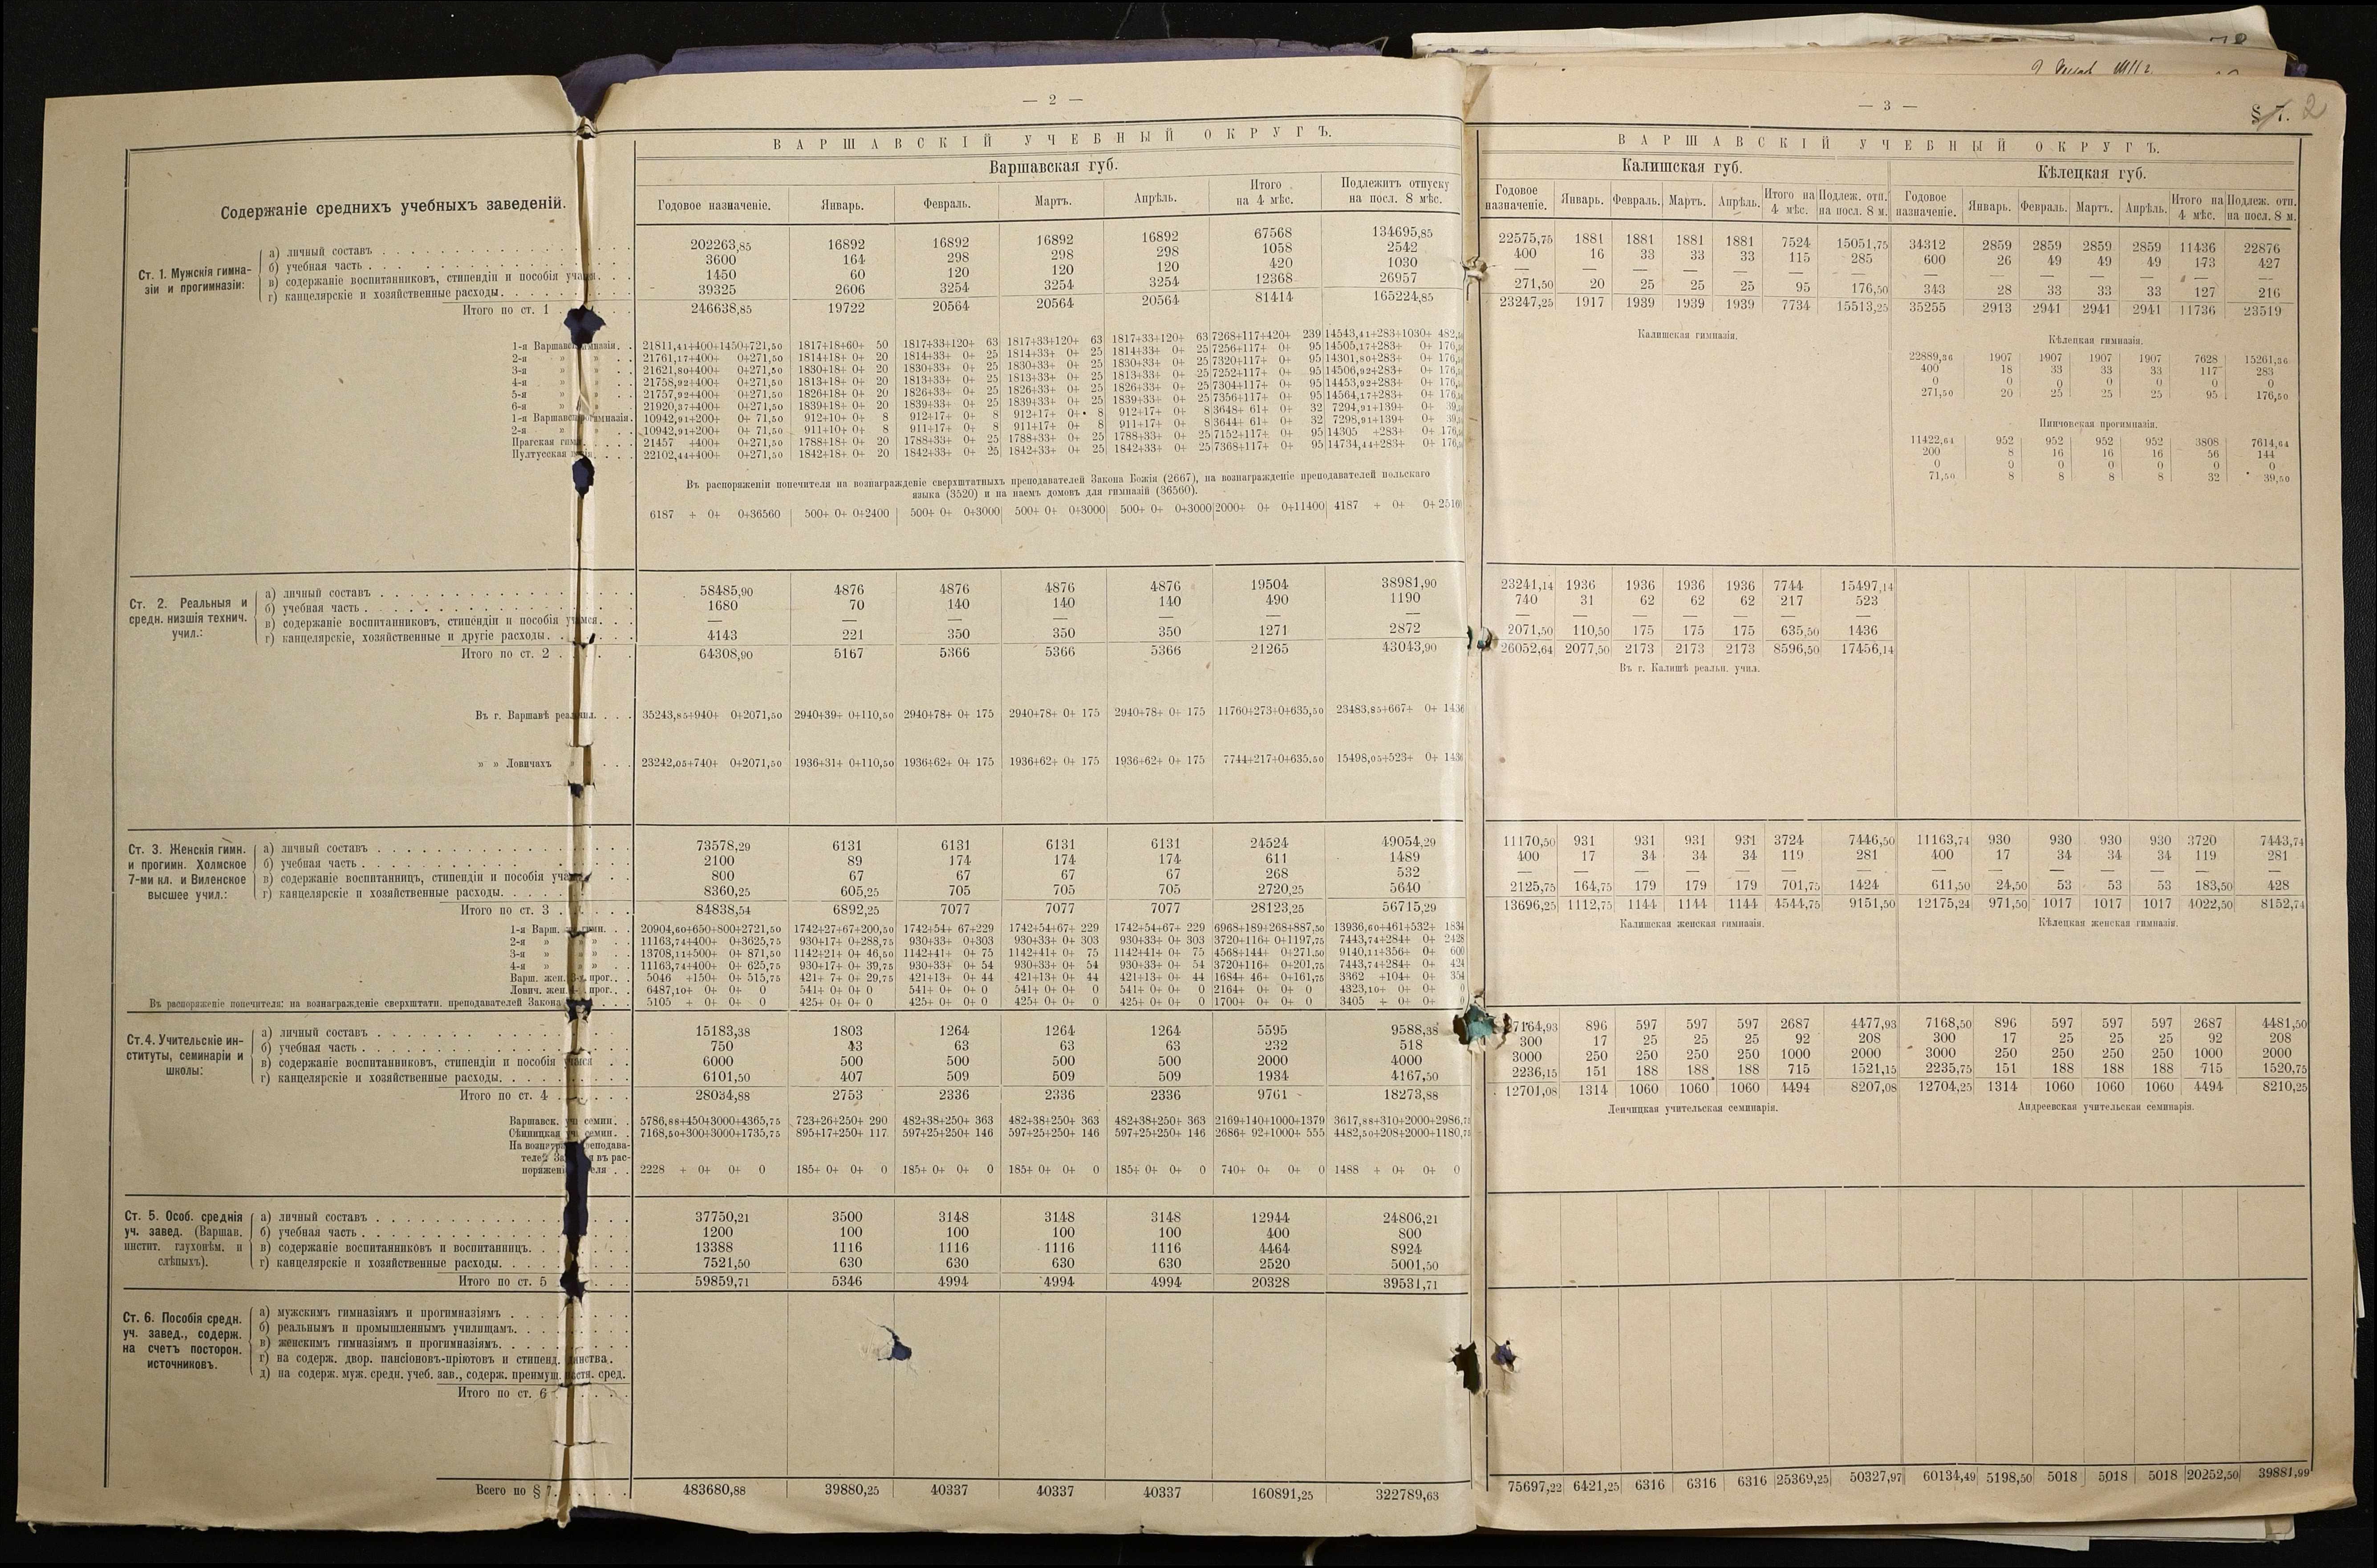 — 2 —
ВАРШАВСКІЙ УЧЕБНЫЙ ОКРУГЪ.
Варшавская губ.
Содержаніе среднихъ учебныхъ заведеній.
Годовое назначеніе. Январь. Февраль. Мартъ. Апрѣль. Итого на 4 мѣс. Подлежитъ отпуску на посл. 8 мѣс.
Ст. 1. Мужскія гимназіи и прогимназіи:
а) личный составъ 202263,85 16892 16892 16892 16892 67568 134695,85
б) учебная часть 3600 164 298 298 298 1058 2542
в) содержаніе воспитанниковъ, стипендіи и пособія 1450 60 120 120 120 420 1030
г) канцелярскіе и хозяйственные расходы 39325 2606 3254 3254 3254 12368 26957
Итого по ст. 1 246638,85 19722 20564 20564 20564 81414 165224,85
1-я 21811,41+400+1450+721,50 1817+18+60+ 50 1817+33+120+ 63 1817+33+120+ 63 1817+33+120+ 63 7268+117+420+ 239 14543,41+283+1030+
2-я » » 21761,17+400+ 0+271,50 1814+18+ 0+ 20 1814+33+ 0+ 25 1814+33+ 0+ 25 1814+33+ 0+ 25 7256+117+ 0+ 95 14505,17+283+ 0+
3-я » » 21621,80+400+ 0+271,50 1830+18+ 0+ 20 1830+33+ 0+ 25 1830+33+ 0+ 25 1830+33+ 0+ 25 7320+117+ 0+ 95 14301,80+283+ 0+
4-я » » 21758,92+400+ 0+271,50 1813+18+ 0+ 20 1813+33+ 0+ 25 1813+33+ 0+ 25 1813+33+ 0+ 25 7252+117+ 0+ 95 14506,92+283+ 0+
5-я » » 21757,92+400+ 0+271,50 1826+18+ 0+ 20 1826+33+ 0+ 25 1826+33+ 0+ 25 1826+33+ 0+ 25 7304+117+ 0+ 95 14453,92+283+ 0+
6-я » » 21920,37+400+ 0+271,50 1839+18+ 0+ 20 1839+33+ 0+ 25 1839+33+ 0+ 25 1839+33+ 0+ 25 7356+117+ 0+ 95 14564,17+283+ 0+
1-я 10942,91+200+ 0+ 71,50 912+10+ 0+ 8 912+17+ 0+ 8 912+17+ 0+ 8 912+17+ 0+ 8 3648+ 61+ 0+ 32 7294,91+139+ 0+
2-я » 10942,91+200+ 0+ 71,50 911+10+ 0+ 8 911+17+ 0+ 8 911+17+ 0+ 8 911+17+ 0+ 8 3644+ 61+ 0+ 32 7298,91+139+ 0+
Прагская 21457 +400+ 0+271,50 1788+18+ 0+ 20 1788+33+ 0+ 25 1788+33+ 0+ 25 1788+33+ 0+ 25 7152+117+ 0+ 95 14305 +283+ 0+
Пултусская 22102,44+400+ 0+271,50 1842+18+ 0+ 20 1842+33+ 0+ 25 1842+33+ 0+ 25 1842+33+ 0+ 25 7368+117+ 0+ 95 14734,44+283+ 0+
Въ распоряженіи попечителя на вознагражденіе сверхштатныхъ преподавателей Закона Божія (2667), на вознагражденіе преподавателей польскаго
языка (3520) и на наемъ домовъ для гимназій (36560).
6187 + 0+ 0+36560 500+ 0+ 0+2400 500+ 0+ 0+3000 500+ 0+ 0+3000 500+ 0+ 0+3000 2000+ 0+ 0+11400 4187 + 0+ 0+
Ст. 2. Реальныя и средн. низшія технич. учил.:
а) личный составъ 58485,90 4876 4876 4876 4876 19504 38981,90
б) учебная часть 1680 70 140 140 140 490 1190
в) содержаніе воспитанниковъ, стипендіи и пособія — — — — — — —
г) канцелярскіе, хозяйственные и другіе расходы 4143 221 350 350 350 1271 2872
Итого по ст. 2 64308,90 5167 5366 5366 5366 21265 43043,90
Въ г. Варшавѣ 35243,85+940+ 0+2071,50 2940+39+ 0+110,50 2940+78+ 0+ 175 2940+78+ 0+ 175 2940+78+ 0+ 175 11760+273+0+635,50 23483,85+667+ 0+ 1436
» » Ловичахъ 23242,05+740+ 0+2071,50 1936+31+ 0+110,50 1936+62+ 0+ 175 1936+62+ 0+ 175 1936+62+ 0+ 175 7744+217+0+635,50 15498,05+523+ 0+ 1436
Ст. 3. Женскія гимн. и прогимн. Холмское 7-ми кл. и Виленское высшее учил.:
а) личный составъ 73578,29 6131 6131 6131 6131 24524 49054,29
б) учебная часть 2100 89 174 174 174 611 1489
в) содержаніе воспитанницъ, стипендіи и пособія 800 67 67 67 67 268 532
г) канцелярскіе и хозяйственные расходы 8360,25 605,25 705 705 705 2720,25 5640
Итого по ст. 3 84838,54 6892,25 7077 7077 7077 28123,25 56715,29
1-я Варш. 20904,60+650+800+2721,50 1742+27+67+200,50 1742+54+ 67+229 1742+54+67+ 229 1742+54+67+ 229 6968+189+268+887,50 13936,60+461+532+ 1834
2-я » » 11163,74+400+ 0+3625,75 930+17+ 0+288,75 930+33+ 0+303 930+33+ 0+ 303 930+33+ 0+ 303 3720+116+ 0+1197,75 7443,74+284+ 0+ 2428
3-я » » 13708,11+500+ 0+ 871,50 1142+21+ 0+ 46,50 1142+41+ 0+ 75 1142+41+ 0+ 75 1142+41+ 0+ 75 4568+144+ 0+271,50 9140,11+356+ 0+ 600
4-я » » 11163,74+400+ 0+ 625,75 930+17+ 0+ 39,75 930+33+ 0+ 54 930+33+ 0+ 54 930+33+ 0+ 54 3720+116+ 0+201,75 7443,74+284+ 0+ 424
Варш. жен. прог. 5046 +150+ 0+ 515,75 421+ 7+ 0+ 29,75 421+13+ 0+ 44 421+13+ 0+ 44 421+13+ 0+ 44 1684+ 46+ 0+161,75 3362 +104+ 0+ 354
Лович. жен. прог. 6487,10+ 0+ 0+ 0 541+ 0+ 0+ 0 541+ 0+ 0+ 0 541+ 0+ 0+ 0 541+ 0+ 0+ 0 2164+ 0+ 0+ 0 4323,10+ 0+ 0+ 0
Въ распоряженіе попечителя: на вознагражденіе сверхштатн. преподавателей Закона 5105 + 0+ 0+ 0 425+ 0+ 0+ 0 425+ 0+ 0+ 0 425+ 0+ 0+ 0 425+ 0+ 0+ 0 1700+ 0+ 0+ 0 3405 + 0+ 0+ 0
Ст. 4. Учительскіе институты, семинаріи и школы:
а) личный составъ 15183,38 1803 1264 1264 1264 5595 9588,38
б) учебная часть 750 43 63 63 63 232 518
в) содержаніе воспитанниковъ, стипендіи и пособія 6000 500 500 500 500 2000 4000
г) канцелярскіе и хозяйственные расходы 6101,50 407 509 509 509 1934 4167,50
Итого по ст. 4 28034,88 2753 2336 2336 2336 9761 18273,88
Варшавск. семин. 5786,88+450+3000+4365,75 723+26+250+ 290 482+38+250+ 363 482+38+250+ 363 482+38+250+ 363 2169+140+1000+1379 3617,88+310+2000+2986,75
Сѣнницкая семин. 7168,50+300+3000+1735,75 895+17+250+ 117 597+25+250+ 146 597+25+250+ 146 597+25+250+ 146 2686+ 92+1000+ 555 4482,50+208+2000+1180,75
2228 + 0+ 0+ 0 185+ 0+ 0+ 0 185+ 0+ 0+ 0 185+ 0+ 0+ 0 185+ 0+ 0+ 0 740+ 0+ 0+ 0 1488 + 0+ 0+ 0
Ст. 5. Особ. среднія уч. завед. (Варшав. инстит. глухонѣм. и слѣпыхъ).
а) личный составъ 37750,21 3500 3148 3148 3148 12944 24806,21
б) учебная часть 1200 100 100 100 100 400 800
в) содержаніе воспитанниковъ и воспитанницъ 13388 1116 1116 1116 1116 4464 8924
г) канцелярскіе и хозяйственные расходы 7521,50 630 630 630 630 2520 5001,50
Итого по ст. 5 59859,71 5346 4994 4994 4994 20328 39531,71
Ст. 6. Пособія средн. уч. завед., содерж. на счетъ посторон. источниковъ.
а) мужскимъ гимназіямъ и прогимназіямъ
б) реальнымъ и промышленнымъ училищамъ
в) женскимъ гимназіямъ и прогимназіямъ
г) на содерж. двор. пансіоновъ-пріютовъ и стипенд.
д) на содерж. муж. средн. учеб. зав., содерж. преимущ. сред.
Итого по ст. 6
Всего по § 7 483680,88 39880,25 40337 40337 40337 160891,25 322789,63
— 3 —
§ 7. 2
ВАРШАВСКІЙ УЧЕБНЫЙ ОКРУГЪ.
Калишская губ. Кѣлецкая губ.
Годовое назначеніе. Январь. Февраль. Мартъ. Апрѣль. Итого на 4 мѣс. Подлеж. отп. на посл. 8 м. Годовое назначеніе. Январь. Февраль. Мартъ. Апрѣль. Итого на 4 мѣс. Подлеж. отп. на посл. 8 м.
22575,75 1881 1881 1881 1881 7524 15051,75 34312 2859 2859 2859 2859 11436 22876
400 16 33 33 33 115 285 600 26 49 49 49 173 427
— — — — — — — — — — — — — —
271,50 20 25 25 25 95 176,50 343 28 33 33 33 127 216
23247,25 1917 1939 1939 1939 7734 15513,25 35255 2913 2941 2941 2941 11736 23519
Калишская гимназія. Кѣлецкая гимназія.
22889,36 1907 1907 1907 1907 7628 15261,36
400 18 33 33 33 117 283
0 0 0 0 0 0 0
271,50 20 25 25 25 95 176,50
Пинчовская прогимназія.
11422,64 952 952 952 952 3808 7614,64
200 8 16 16 16 56 144
0 0 0 0 0 0 0
71,50 8 8 8 8 32 39,50
23241,14 1936 1936 1936 1936 7744 15497,14
740 31 62 62 62 217 523
— — — — — — —
2071,50 110,50 175 175 175 635,50 1436
26052,64 2077,50 2173 2173 2173 8596,50 17456,14
Въ г. Калишѣ реальн. учил.
11170,50 931 931 931 931 3724 7446,50 11163,74 930 930 930 930 3720 7443,74
400 17 34 34 34 119 281 400 17 34 34 34 119 281
— — — — — — — — — — — — — —
2125,75 164,75 179 179 179 701,75 1424 611,50 24,50 53 53 53 183,50 428
13696,25 1112,75 1144 1144 1144 4544,75 9151,50 12175,24 971,50 1017 1017 1017 4022,50 8152,74
Калишская женская гимназія. Кѣлецкая женская гимназія.
7164,93 896 597 597 597 2687 4477,93 7168,50 896 597 597 597 2687 4481,50
300 17 25 25 25 92 208 300 17 25 25 25 92 208
3000 250 250 250 250 1000 2000 3000 250 250 250 250 1000 2000
2236,15 151 188 188 188 715 1521,15 2235,75 151 188 188 188 715 1520,75
12701,08 1314 1060 1060 1060 4494 8207,08 12704,25 1314 1060 1060 1060 4494 8210,25
Ленчицкая учительская семинарія. Андреевская учительская семинарія.
75697,22 6421,25 6316 6316 6316 25369,25 50327,97 60134,49 5198,50 5018 5018 5018 20252,50 39881,99